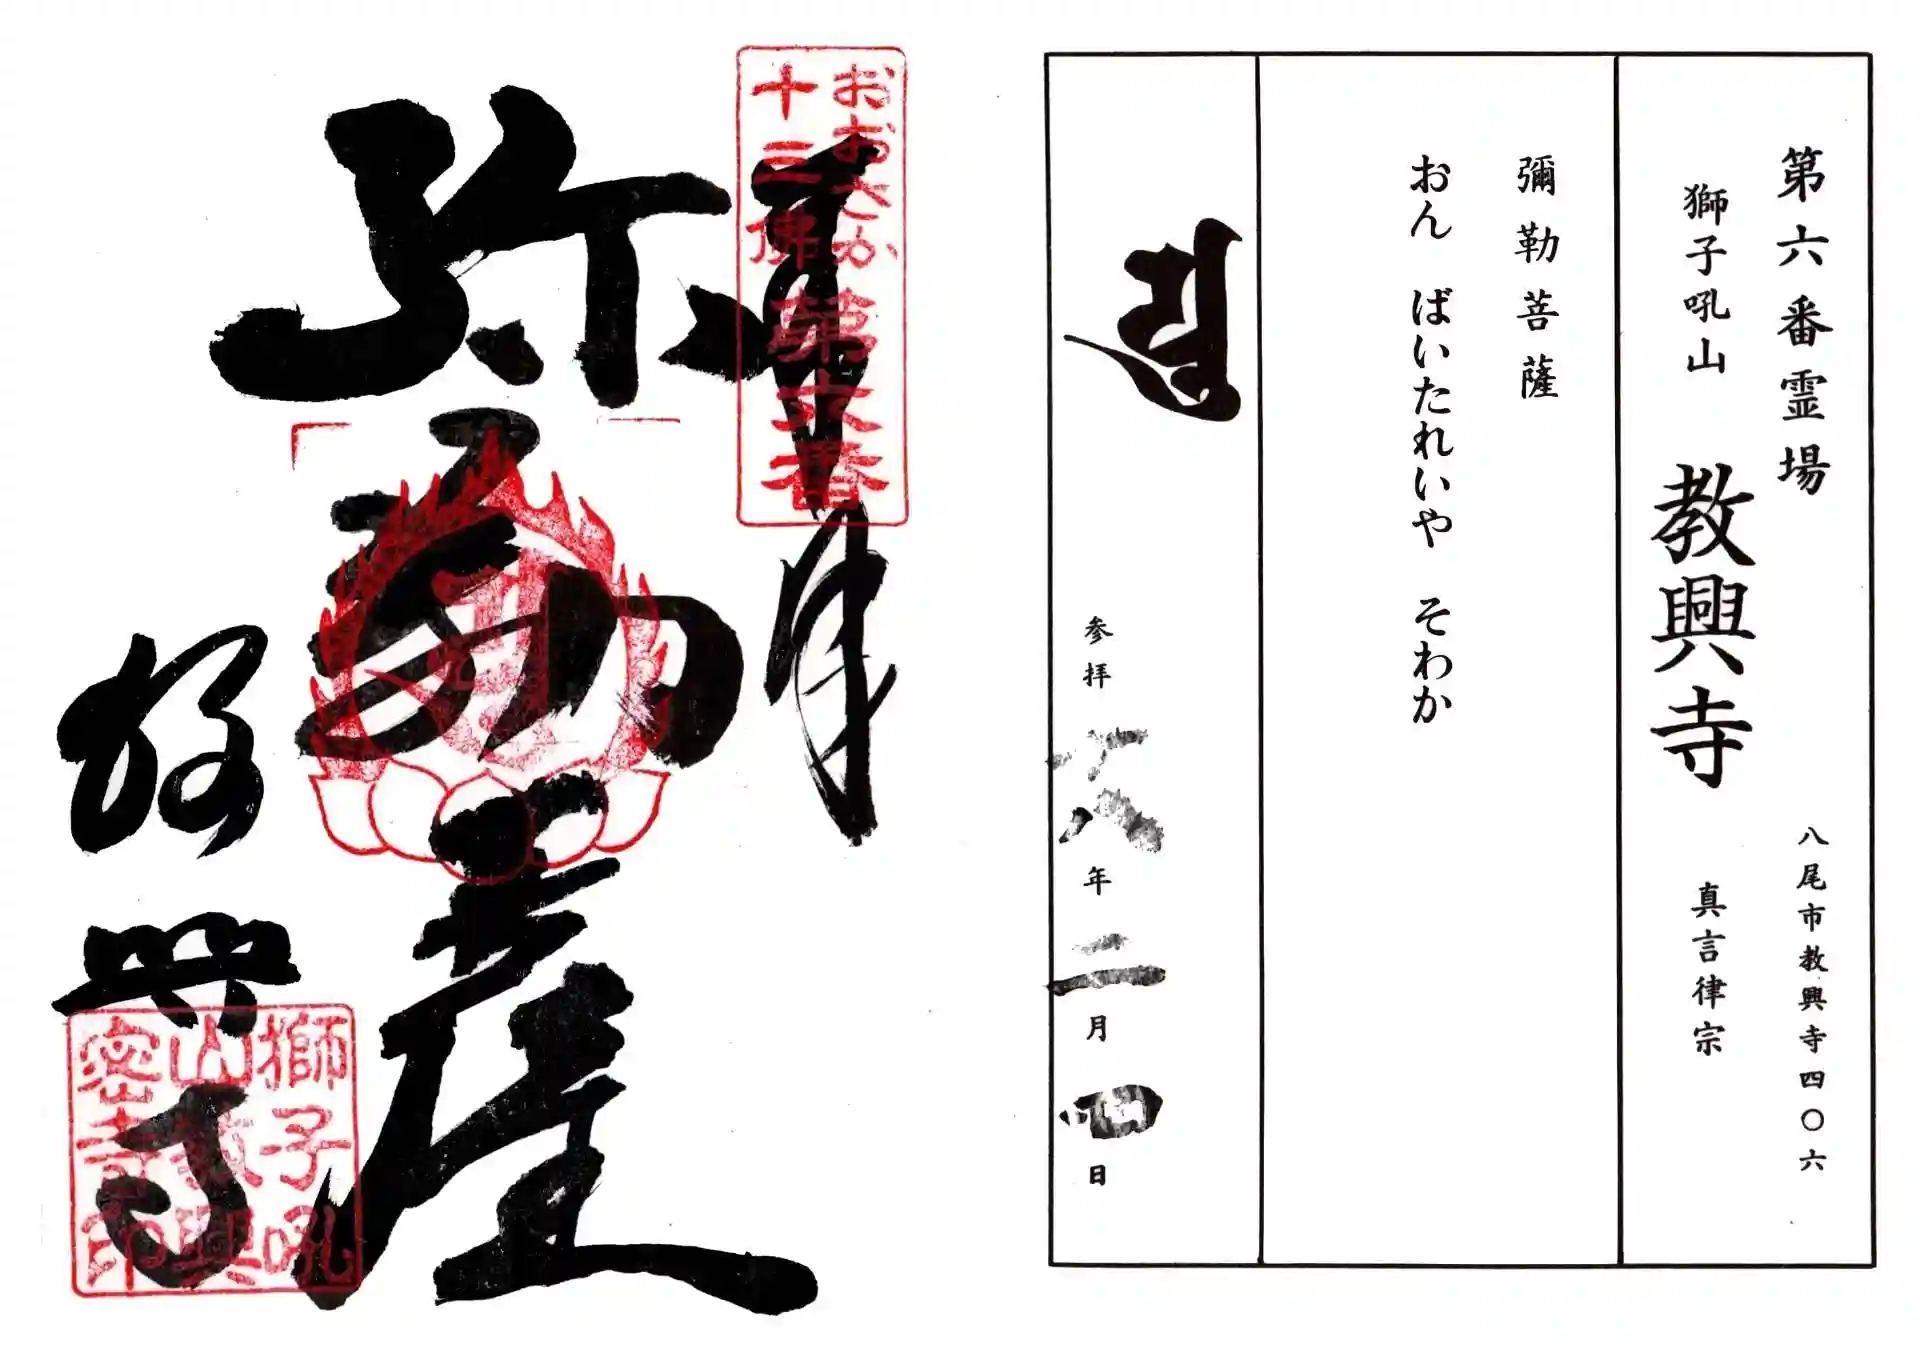 第六番霊場
八尾市教興寺四〇六
獅子吼山 教興寺 真言律宗
彌勒菩薩
おん ばいたれいや そわか
参拝 六年二月四日
おおさか
十三佛
第六番
奉拝
弥勒菩薩
教興寺
獅子吼
山教興
密寺印